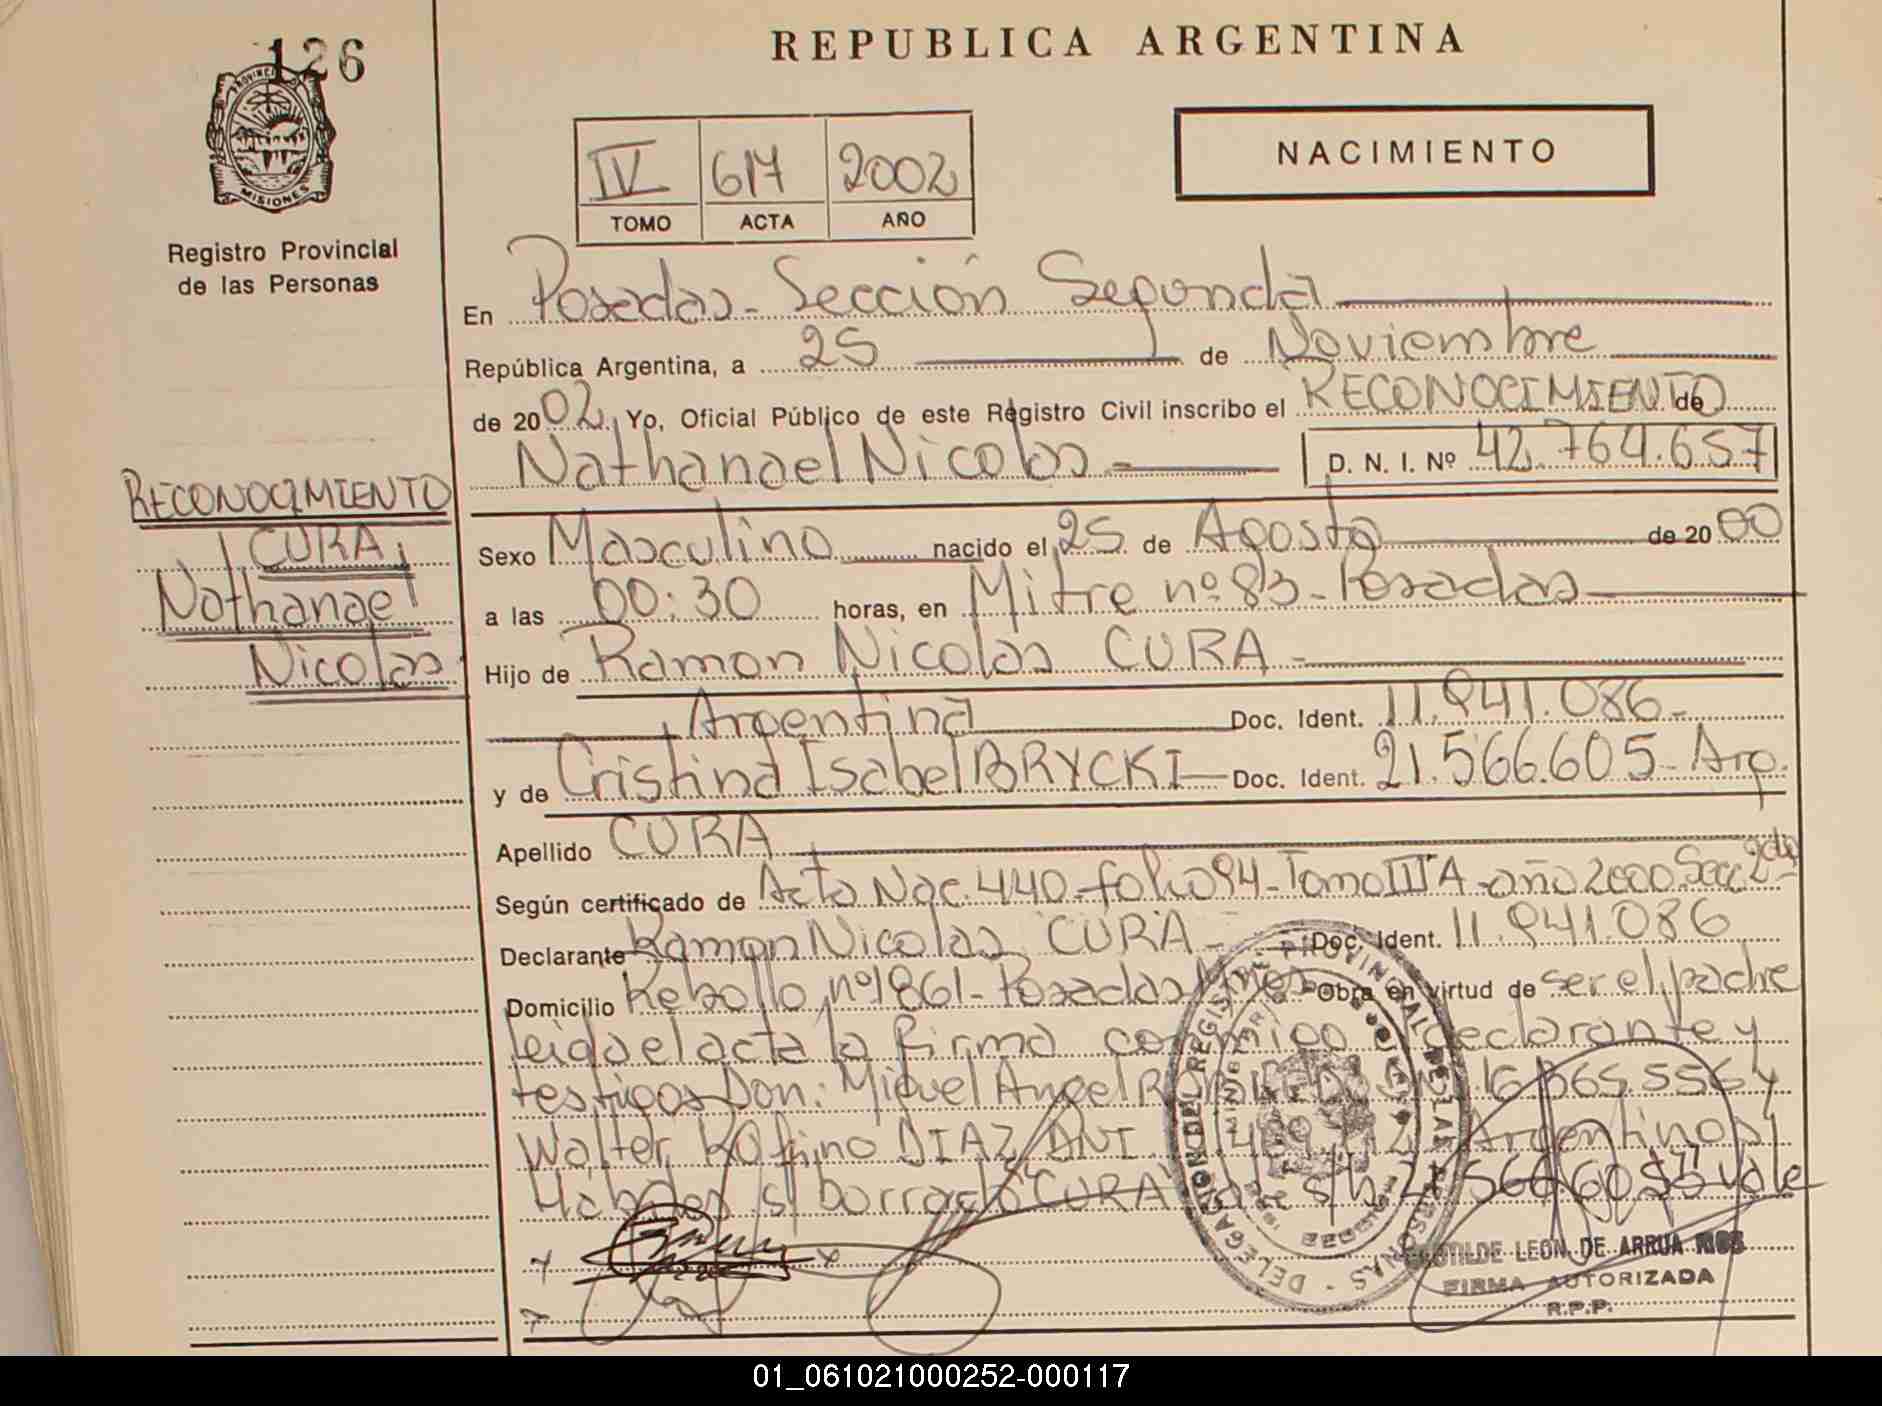 126
REPUBLICA ARGENTINA
PROVINCIA DE MISIONES
Registro Provincial
de las Personas
IV 617 2002
TOMO ACTA AÑO
NACIMIENTO
En Posadas - Sección Segunda
República Argentina, a 25 de Noviembre
de 2002. Yo, Oficial Público de este Registro Civil inscribo el RECONOCIMIENTO de
Nathanael Nicolas - D. N. I. Nº 42.764.657
RECONOCIMIENTO
CURA,
Nathanael
Nicolas
Sexo Masculino nacido el 25 de Agosto de 2000
a las 00:30 horas, en Mitre nº 83 - Posadas
Hijo de Ramon Nicolas CURA -
Argentina Doc. Ident. 11.941.086 -
y de Cristina Isabel BRYCKI Doc. Ident. 21.566.605 - Arg.
Apellido CURA
Según certificado de Acta Nac. 440 - folio 94 - Tomo III A - año 2000 Secc 2da
Declarante Ramon Nicolas CURA - Doc. Ident. 11.941.086
Domicilio Rebollo nº 1861 - Posadas Mnes Obra en virtud de ser el padre
leida el acta la firma conmigo el declarante y
testigos Don: Miguel Angel 16.365.556 y
Walter Rufino DIAZ DNI Argentinos y
Habdes s/ borrado "CURA" s/h 21.566.605 vale
DELEGACION DEL REGISTRO PROVINCIAL DE LAS PERSONAS
LEON DE ARRUA RIOS
FIRMA AUTORIZADA
R.P.P.
01_061021000252-000117